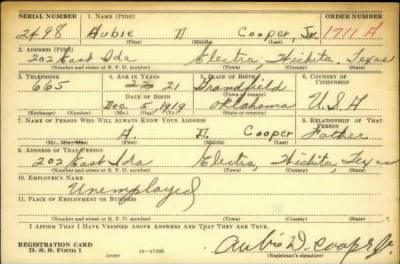 SERIAL NUMBER 1. NAME (Print) ORDER NUMBER
2498 Aubie D Cooper, Jr. 1711 A
(First) (Middle) (Last)
2. ADDRESS (Print)
202 East Ida Electra, Wichita, Texas
(Number and street or R. F. D. number) (Town) (County) (State)
3. TELEPHONE 4. AGE IN YEARS 5. PLACE OF BIRTH 6. COUNTRY OF CITIZENSHIP
665 21 Grandfield
DATE OF BIRTH (Town or county)
Dec. 5, 1919 Oklahoma U.S.A
(Mo.) (Day) (Yr.) (State or country)
7. NAME OF PERSON WHO WILL ALWAYS KNOW YOUR ADDRESS 8. RELATIONSHIP OF THAT PERSON
A. D. Cooper Father
(Mr., Mrs., Miss) (First) (Middle) (Last)
9. ADDRESS OF THAT PERSON
202 East Ida Electra, Wichita, Texas
(Number and street or R. F. D. number) (Town) (County) (State)
10. EMPLOYER'S NAME
Unemployed
11. PLACE OF EMPLOYMENT OR BUSINESS
(Number and street or R. F. D. number) (Town) (County) (State)
I AFFIRM THAT I HAVE VERIFIED ABOVE ANSWERS AND THAT THEY ARE TRUE.
REGISTRATION CARD
D. S. S. Form 1 (over) Aubie D. Cooper Jr.
(Registrant's signature)